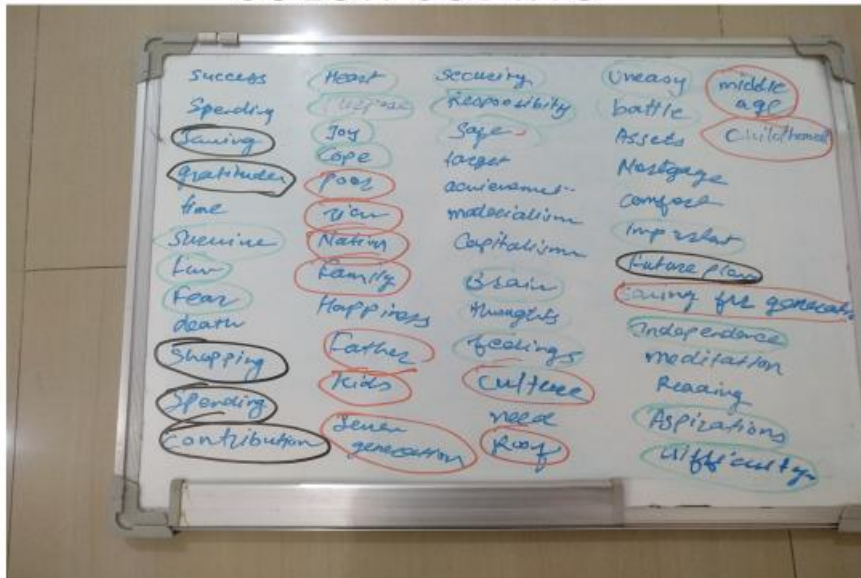 Success
Spending
Saving
gratitudes
time
Survive
Fear
death
Shopping
Spending
Contribution
Heart
Joy
Cope
Poor
rich
Nation
Family
Happiness
Father
Kids
Seven
generation
Security
Responsibity
Safe
target
achievement
materialism
Capitalism
Brain
thoughts
feelings
Culture
need
Roof
Uneasy
battle
Assets
Mortgage
Comfort
Important
Future plan
Saving for generation
Independence
meditation
Reading
Aspirations
Difficulty
middle
age
Childhood